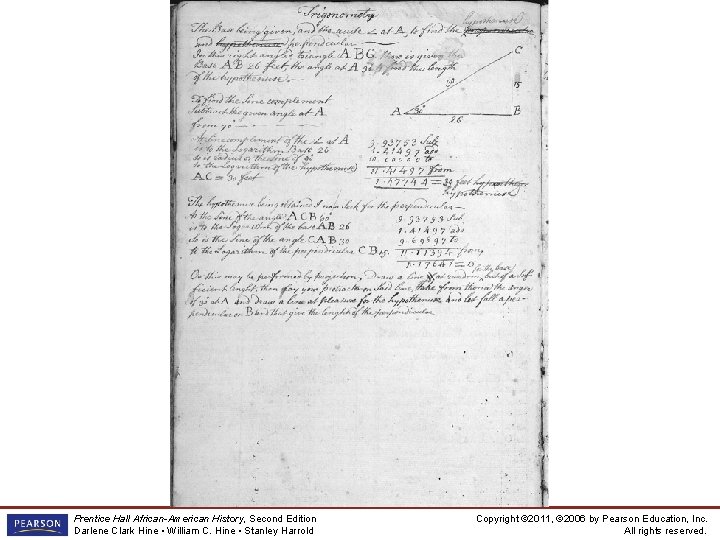 Trigonometry
The Base being given, and the acute ∠ at A, to find the hypothenuse
and hypothenuse perpendicular
For this right angled triangle ABC There is given the
Base AB 26 feet, the angle at A 30 to find the length
of the hypothenuse.
C
30
15
A 30 B
26
To find the Sine complement
Subtract the given angle at A
from 90
As Sine complement of the ∠ at A
is to the Logarithm Base 26
so is radius the Sine of 90
to the Logarithm of the hypothenuse
AC = 30 feet
9.93753 Sub
1.41497 add
10.00000 to
11.41497 from
1.47744 = 30 feet hypothenuse
The hypothenuse being obtained I now seek for the perpendicular
As the Sine of the angle ACB 60
is to the Logarithm of the base AB 26
So is the Sine of the angle CAB 30
to the Logarithm of the perpendicular CB 15
9.93753 Sub
1.41497 add
9.69897 to
11.11394 from
1.17641 = 15
Or this may be performed by
length, then lay your protractor on said line, take from thence the angle
of 30 at A and draw a line at pleasure for the hypothenuse and let fall a per-
pendicular on B and that give the lenght of the perpendicular
PEARSON
Prentice Hall African-American History, Second Edition
Darlene Clark Hine • William C. Hine • Stanley Harrold
Copyright ©2011, ©2006 by Pearson Education, Inc.
All rights reserved.